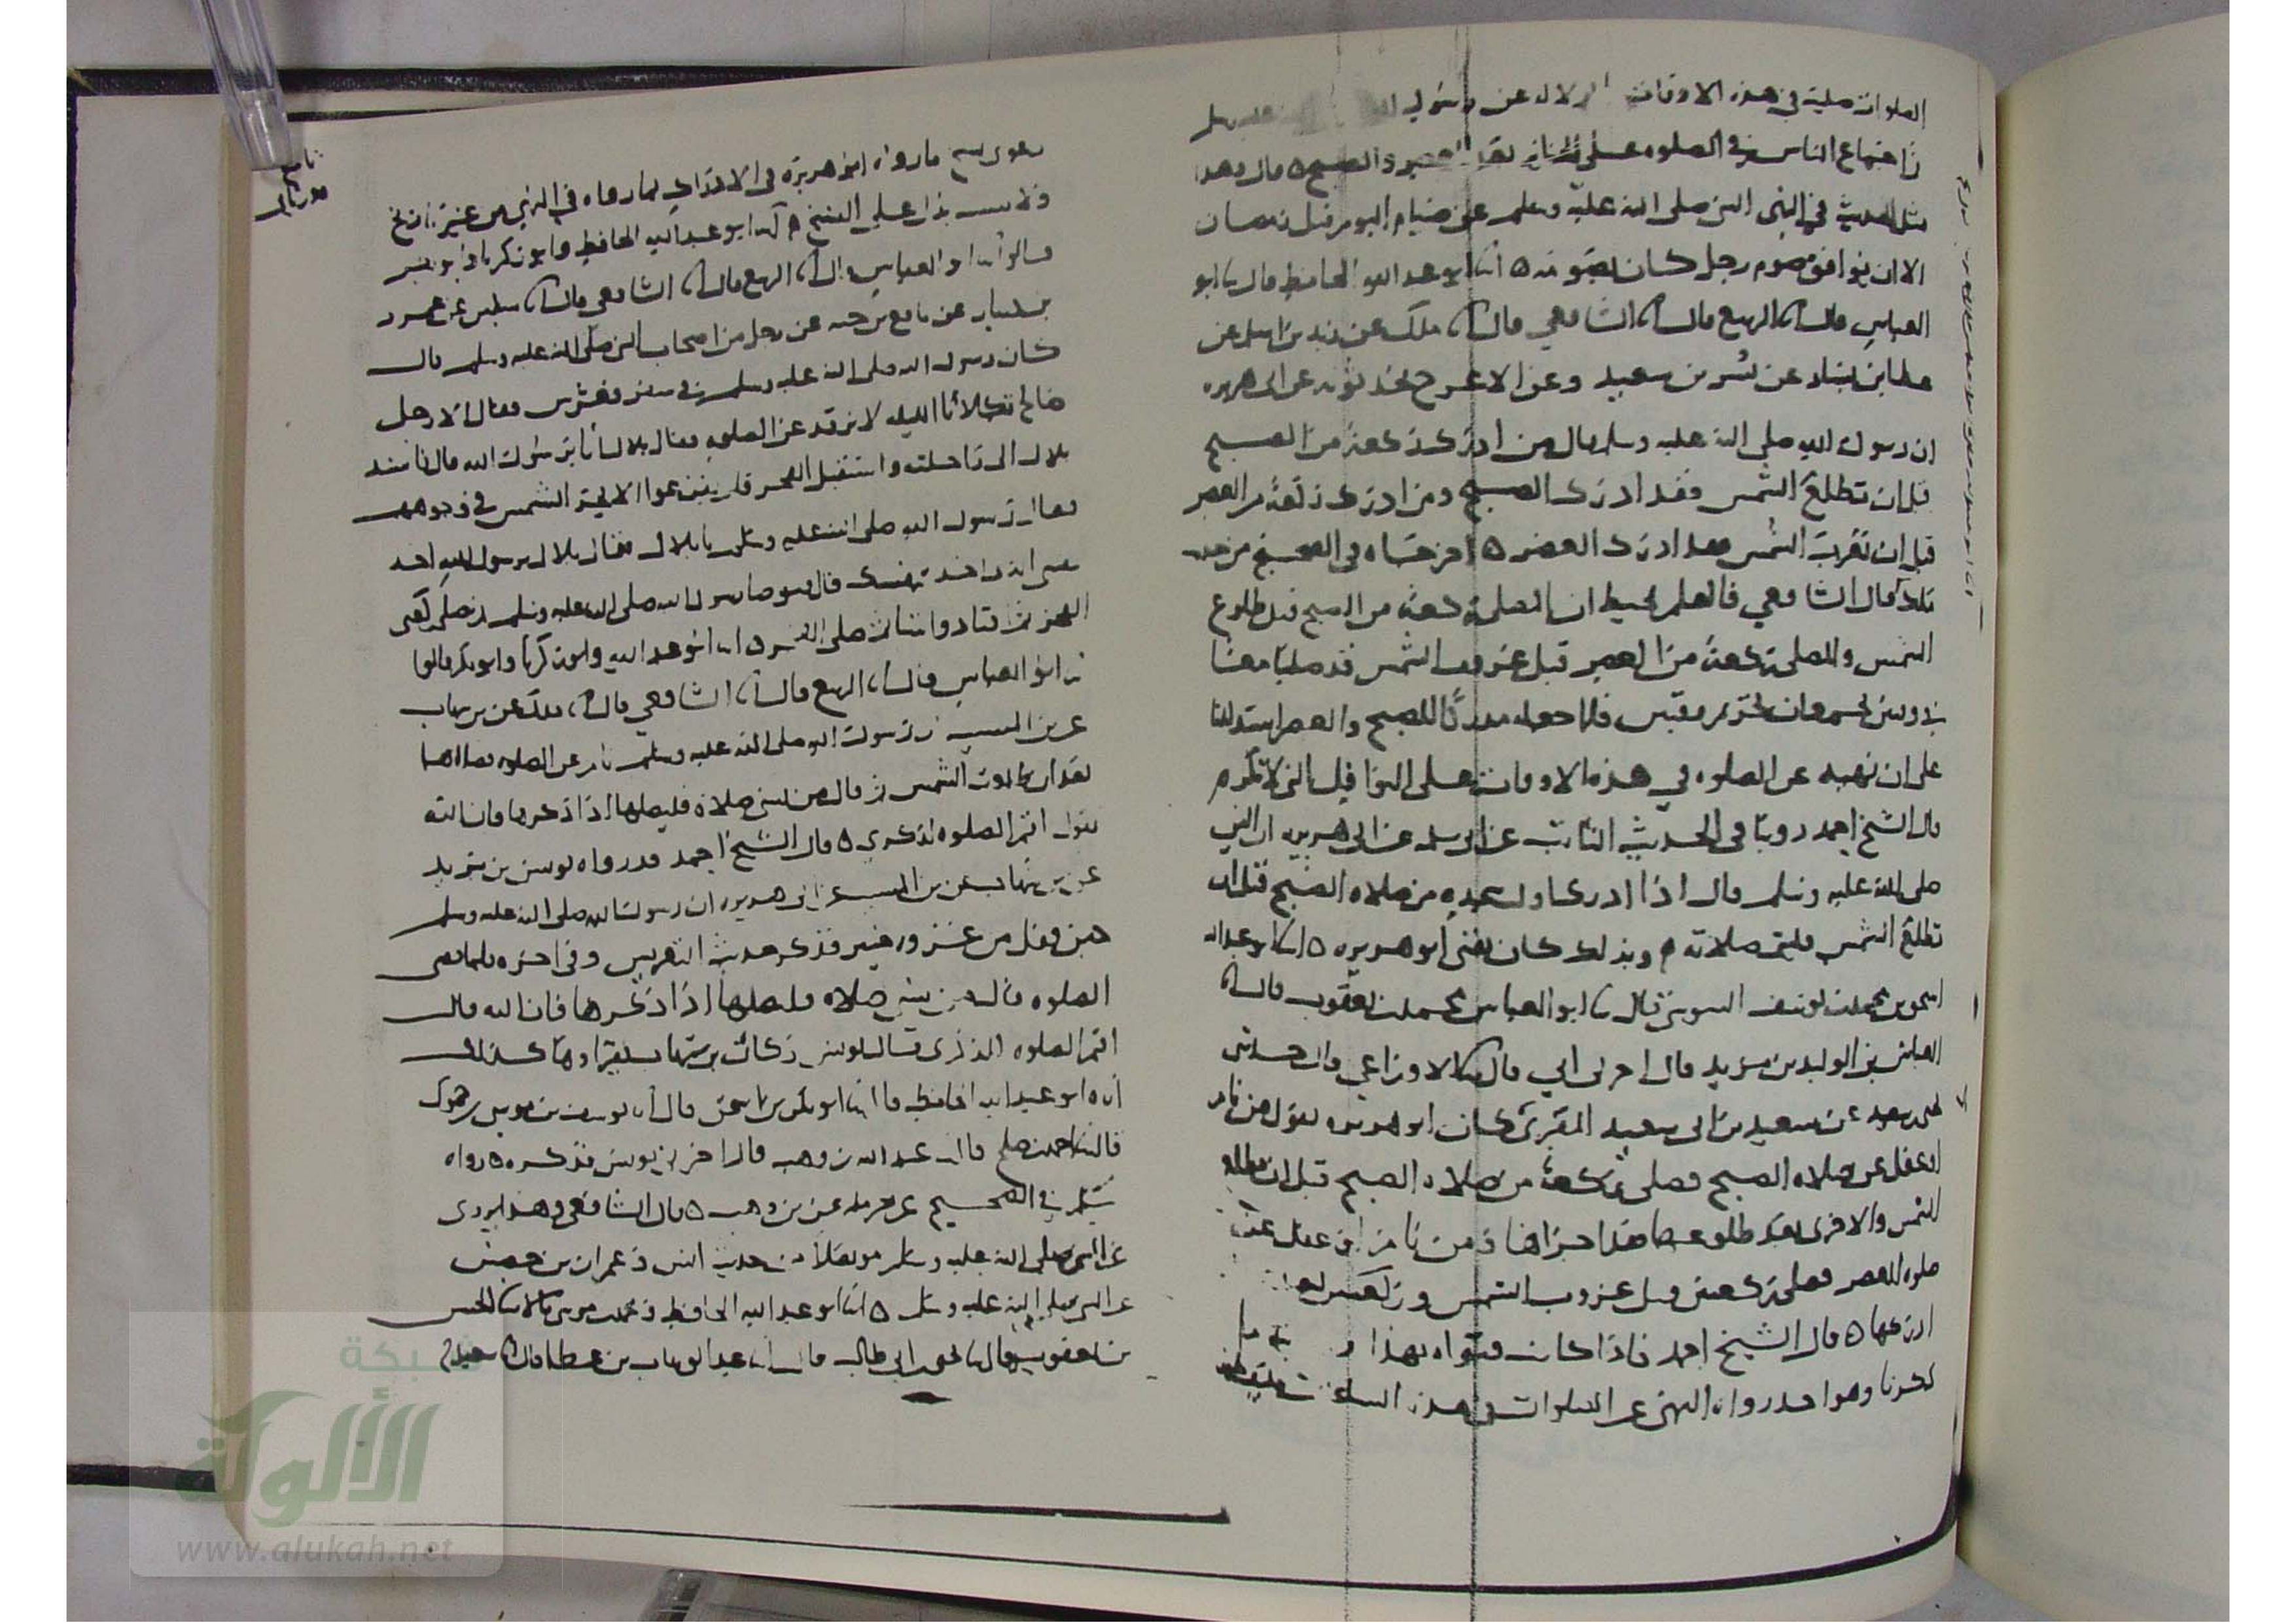 الصلوات صليت في هذه الاوقات الدلاله عن رسول الله عليه وسلم
واجتماع الناس في الصلوه على الجنائز بعد العصر والصبح ٥ قال وهذا
مثل الحديث في النهي النبي صلى الله عليه وسلم عن صيام اليوم قبل رمضان
الا ان يوافق صوم رجل كان يصومه ٥ انا ابو عبد الله الحافظ قال نا ابو
العباس قال انا الربيع قال انا الشافعي قال انا ملك عن زيد بن اسلم عن
عطا بن يسار عن بسر بن سعيد وعن الاعرج يحدثونه عن ابي هريره
ان رسول الله صلى الله عليه وسلم قال من ادرك ركعة من الصبح
قبل ان تطلع الشمس فقد ادرك الصبح ومن ادرك ركعة من العصر
قبل ان تغرب الشمس فقد ادرك العصر ٥ اخرجاه في الصحيح من حديث
ملك قال الشافعي فالعلم يحيط ان المصلي ركعة من الصبح قبل طلوع
الشمس والمصلي ركعة من العصر قبل غروب الشمس قد صليا معا
في وقتين يجمعان تحريم وقتين فلما جعله مدركا للصبح والعصر استدللنا
على ان نهيه عن الصلوه في هذه الاوقات على النوافل التي لا تلزم
قال الشيخ احمد روينا في الحديث الثابت عن ابي سلمه عن ابي هريره ان النبي
صلى الله عليه وسلم قال اذا ادرك اول سجده من صلاه الصبح قبل ان
تطلع الشمس فليتم صلاته م وبذلك كان يفتي ابو هريره ٥ انا ابو عبد الله
اسحق بن محمد بن يوسف السوسي قال نا ابو العباس محمد بن يعقوب قال انا
العباس بن الوليد بن مزيد قال اخبرني ابي قال نا الاوزاعي قال حدثني
يحيى بن سعيد عن سعيد بن ابي سعيد المقبري كان ابو هريره يقول من نام
او غفل عن صلاه الصبح فصلى ركعة من صلاه الصبح قبل ان تطلع
الشمس والاخرى بعد طلوعها فقد اجزاها ومن نام او غفل عن
صلوه العصر فصلى ركعتين قبل غروب الشمس وركعتين بعد
ادركها ٥ قال الشيخ احمد فاذا كان فتواه بهذا
ذكرنا وهو احد رواه النهي عن الصلوات في هذه الساعات
دعوى نسخ ما رواه ابو هريره في الادراك بما رواه في النهي من غير تاريخ
ولا سبب يدل على النسخ م انا ابو عبد الله الحافظ وابو زكريا وابو بكر
قالوا نا ابو العباس قال انا الربيع قال انا الشافعي قال انا سفين عن عمرو
بن دينار عن نافع بن جبير عن رجل من اصحاب النبي صلى الله عليه وسلم قال
كان رسول الله صلى الله عليه وسلم في سفر فعرس فقال الا رجل
صالح يكلأنا الليله لا نرقد عن الصلوه فقال بلال انا يا رسول الله قال فاستند
بلال الى راحلته واستقبل الفجر فلم يفزعوا الا بحر الشمس في وجوههم
فقال رسول الله صلى الله عليه وسلم يا بلال فقال بلال يرسول الله اخذ
بنفسي الذي اخذ بنفسك قال فتوضا رسول الله صلى الله عليه وسلم ثم صلى ركعتي
الفجر ثم اقتادوا شيئا ثم صلى الفجر ٥ انا ابو عبد الله وابو زكريا وابو بكر قالوا
نا ابو العباس قال انا الربيع قال انا الشافعي قال انا ملك عن بن شهاب
عن بن المسيب ان رسول الله صلى الله عليه وسلم نام عن الصلوه فصلاها
بعد ان طلعت الشمس ثم قال من نسي صلاة فليصلها اذا ذكرها فان الله
يقول اقم الصلوه لذكري ٥ قال الشيخ احمد قد رواه يونس بن يزيد
عن بن شهاب عن بن المسيب عن ابي هريره ان رسول الله صلى الله عليه وسلم
حين قفل من غزوه خيبر فذكر حديث التعريس وفي اخره فلما قضى
الصلوه قال من نسي صلاه فليصلها اذا ذكرها فان الله قال
اقم الصلوه لذكري قال يونس وكان بن شهاب يقراوها كذلك
انا ابو عبد الله الحافظ قال انا ابو بكر بن اسحق قال انا يوسف بن موسى
قال نا احمد بن صلح قال نا عبد الله بن وهب قال اخبرني يونس فذكره ٥ رواه
مسلم في الصحيح عن حرمله عن بن وهب ٥ قال الشافعي وهذا يروى
عن النبي صلى الله عليه وسلم موصولا من حديث انس وعمران بن حصين
عن النبي صلى الله عليه وسلم ٥ انا ابو عبد الله الحافظ ومحمد بن موسى قالا نا ابو العباس
بن يعقوب قال نا يحيى بن ابي طالب قال انا عبد الوهاب بن عطا قال انا سعيد
شبكة
الألوكة
www.alukah.net